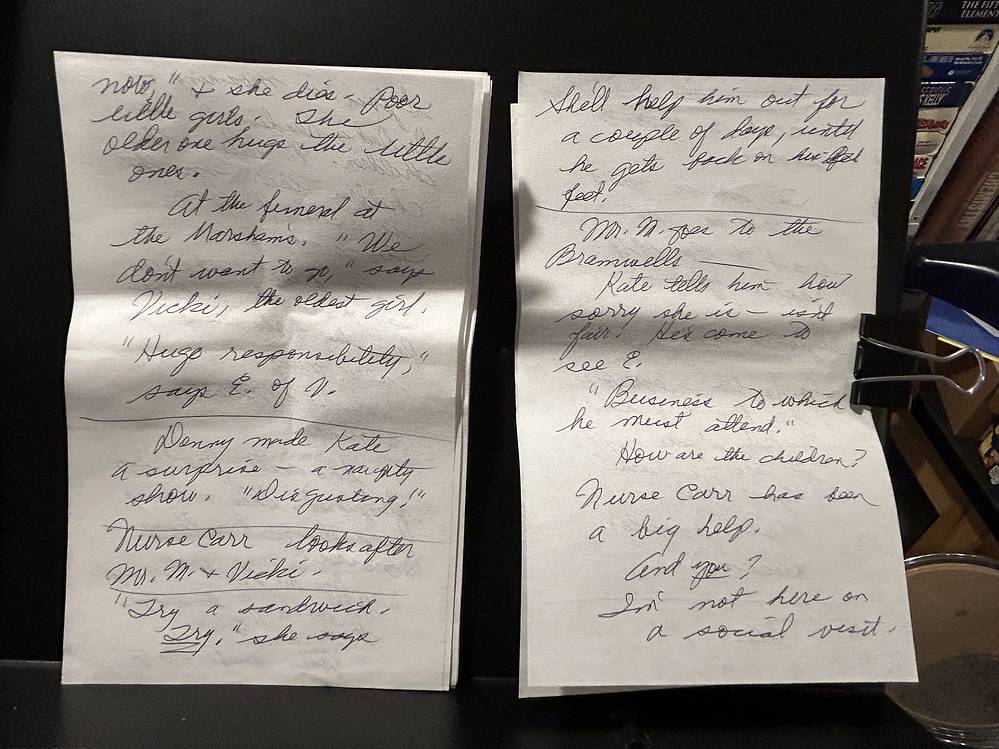 now," & she dies. Poor
little girls. The
older one hugs the little
ones.
At the funeral at
the Marsham's. "We
don't want to go," says
Vicki, the oldest girl.
"Huge responsibility,"
says E. of V.
Denny made Kate
a surprise – a naughty
show. "Disgusting!"
Nurse Carr looks after
Mr. M. & Vicki.
"Try a sandwich.
Try," she says
She'll help him out for
a couple of days, until
he gets back on his
feet.
Mr. M. goes to the
Bramwells
Kate tells him how
sorry she is – isn't
fair. He's come to
see E.
"Business to which
he must attend."
How are the children?
Nurse Carr has been
a big help.
And you?
I'm not here on
a social visit.
THE FIFTH
ELEMENT